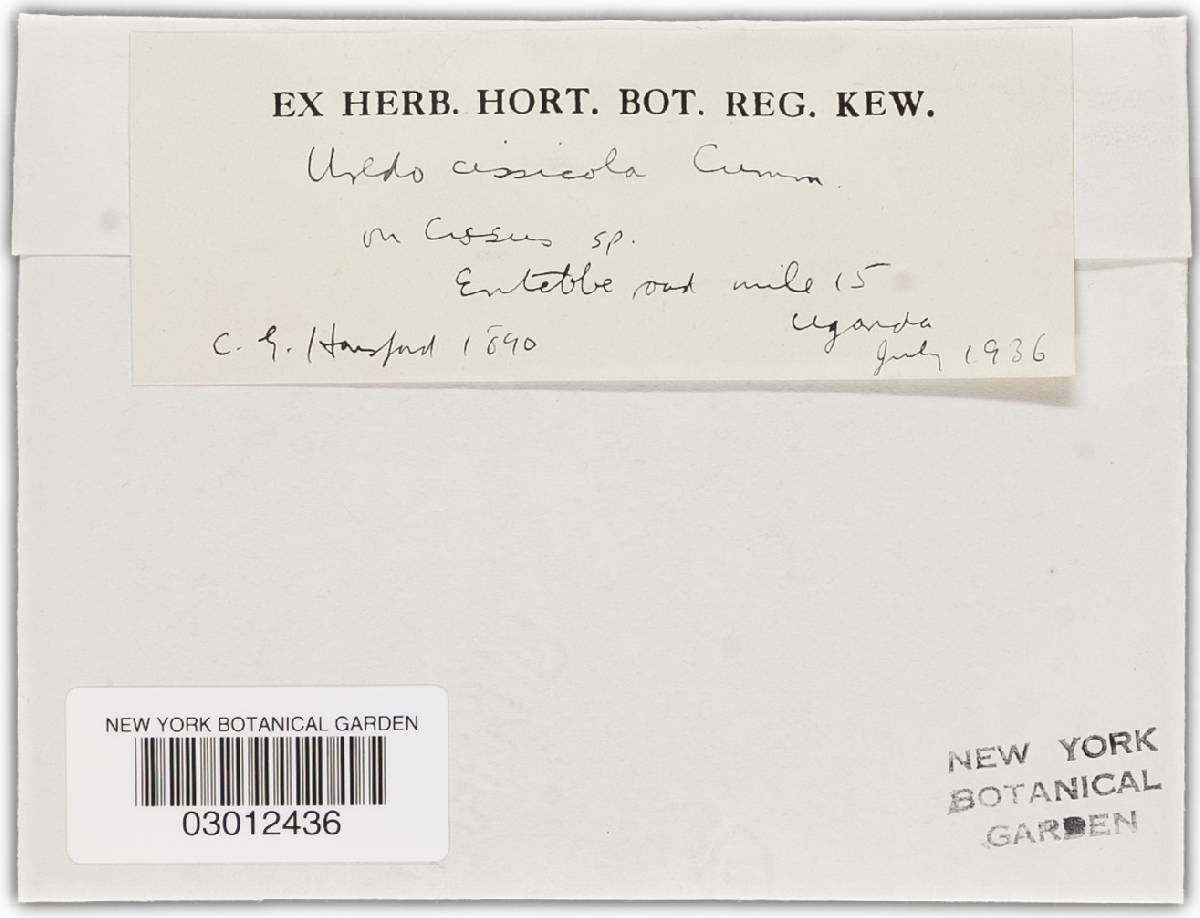 EX HERB. HORT. BOT. REG. KEW.
Uredo cissicola Cumm.
on Cissus sp.
Entebbe road mile 15
Uganda
C. G. Hansford 1890
July 1936
NEW YORK BOTANICAL GARDEN
03012436
NEW YORK
BOTANICAL
GARDEN